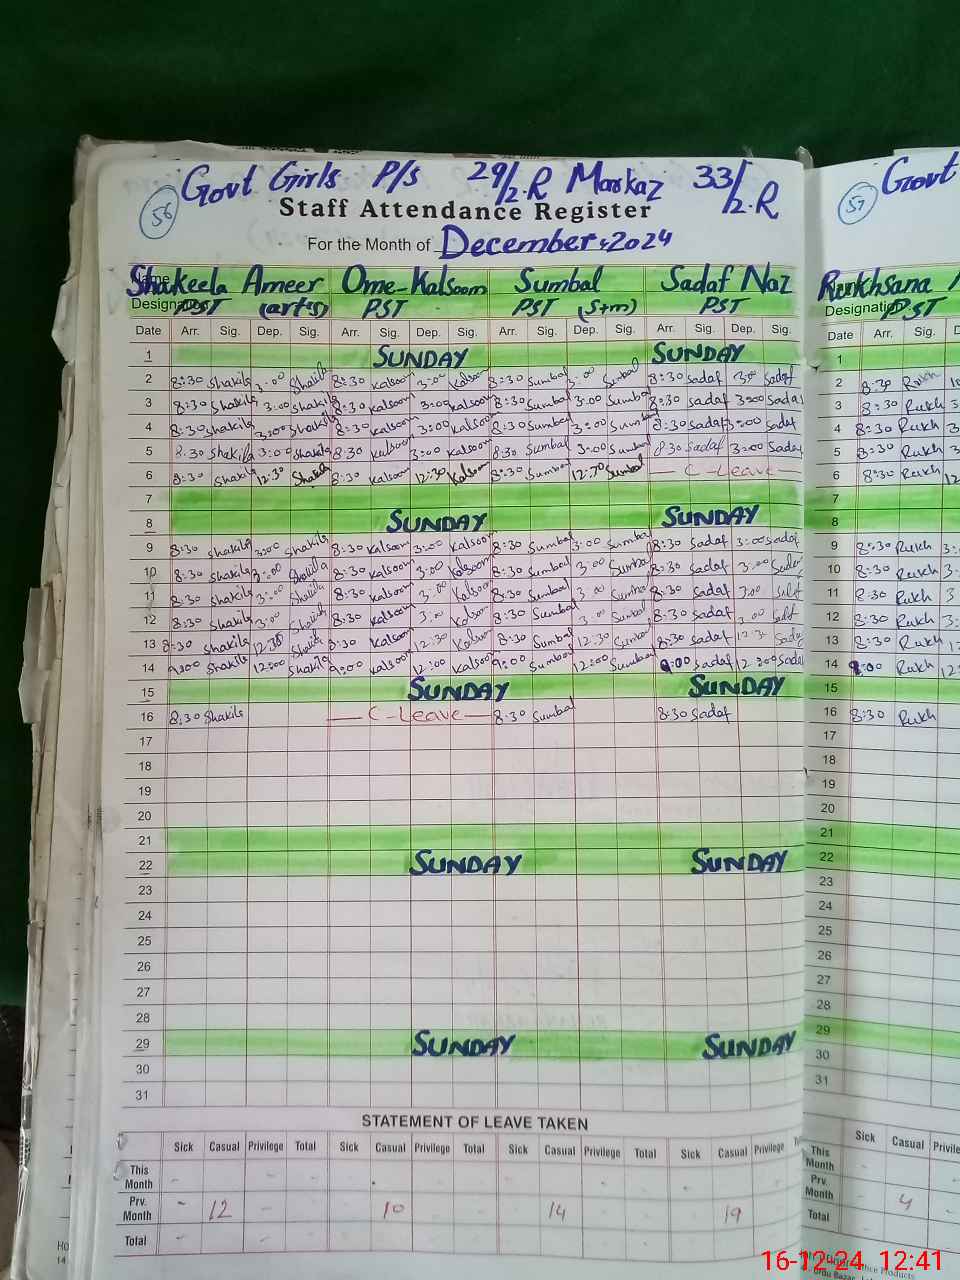 56 Govt Girls P/s 29/2.R Markaz 33/2.R
Staff Attendance Register
For the Month of December,2024
Shakeela Ameer Ome-Kalsoom Sumbal Sadaf Naz
Designation PST (arts) PST PST (S+m) PST
Date Arr. Sig. Dep. Sig. Arr. Sig. Dep. Sig. Arr. Sig. Dep. Sig. Arr. Sig. Dep. Sig.
1 SUNDAY SUNDAY
2 8:30 Shakila 3:00 Shakila 8:30 Kalsoom 3:00 Kalsoom 8:30 Sumbal 3:00 Sumbal 8:30 Sadaf 3:00 Sadaf
3 8:30 Shakila 3:00 Shakila 8:30 Kalsoom 3:00 Kalsoom 8:30 Sumbal 3:00 Sumbal 8:30 Sadaf 3:00 Sadaf
4 8:30 Shakila 3:00 Shakila 8:30 Kalsoom 3:00 Kalsoom 8:30 Sumbal 3:00 Sumbal 8:30 Sadaf 3:00 Sadaf
5 8:30 Shakila 3:00 Shakila 8:30 Kalsoom 3:00 Kalsoom 8:30 Sumbal 3:00 Sumbal 8:30 Sadaf 3:00 Sadaf
6 8:30 Shakila 12:30 Shakila 8:30 Kalsoom 12:30 Kalsoom 8:30 Sumbal 12:30 Sumbal C-Leave
7
8 SUNDAY SUNDAY
9 8:30 Shakila 3:00 Shakila 8:30 Kalsoom 3:00 Kalsoom 8:30 Sumbal 3:00 Sumbal 8:30 Sadaf 3:00 Sadaf
10 8:30 Shakila 3:00 Shakila 8:30 Kalsoom 3:00 Kalsoom 8:30 Sumbal 3:00 Sumbal 8:30 Sadaf 3:00 Sadaf
11 8:30 Shakila 3:00 Shakila 8:30 Kalsoom 3:00 Kalsoom 8:30 Sumbal 3:00 Sumbal 8:30 Sadaf 3:00
12 8:30 Shakila 3:00 Shakila 8:30 Kalsoom 3:00 Kalsoom 8:30 Sumbal 3:00 Sumbal 8:30 Sadaf 3:00
13 8:30 Shakila 12:30 Shakila 8:30 Kalsoom 12:30 Kalsoom 8:30 Sumbal 12:30 Sumbal 8:30 Sadaf 12:30 Sadaf
14 9:00 Shakila 12:00 Shakila 9:00 Kalsoom 12:00 Kalsoom 9:00 Sumbal 12:00 Sumbal 9:00 Sadaf 12:00 Sadaf
15 SUNDAY SUNDAY
16 8:30 Shakila C-Leave 8:30 Sumbal 8:30 Sadaf
17
18
19
20
21
22 SUNDAY SUNDAY
23
24
25
26
27
28
29 SUNDAY SUNDAY
30
31
STATEMENT OF LEAVE TAKEN
Sick Casual Privilege Total Sick Casual Privilege Total Sick Casual Privilege Total Sick Casual Privilege
This Month
Prv. Month - 12 10 14 19
Total
57 Govt
Rukhsana
Designation PST
Date Arr. Sig.
1
2 8:30 Rukh
3 8:30 Rukh 3
4 8:30 Rukh 3
5 8:30 Rukh 3
6 8:30 Rukh 12
7
8
9 8:30 Rukh 3:
10 8:30 Rukh 3
11 8:30 Rukh 3
12 8:30 Rukh 3:
13 8:30 Rukh
14 9:00 Rukh 12
15
16 8:30 Rukh
17
18
19
20
21
22
23
24
25
26
27
28
29
30
31
Sick Casual
This Month
Prv. Month 4
Total
16-12-24 12:41